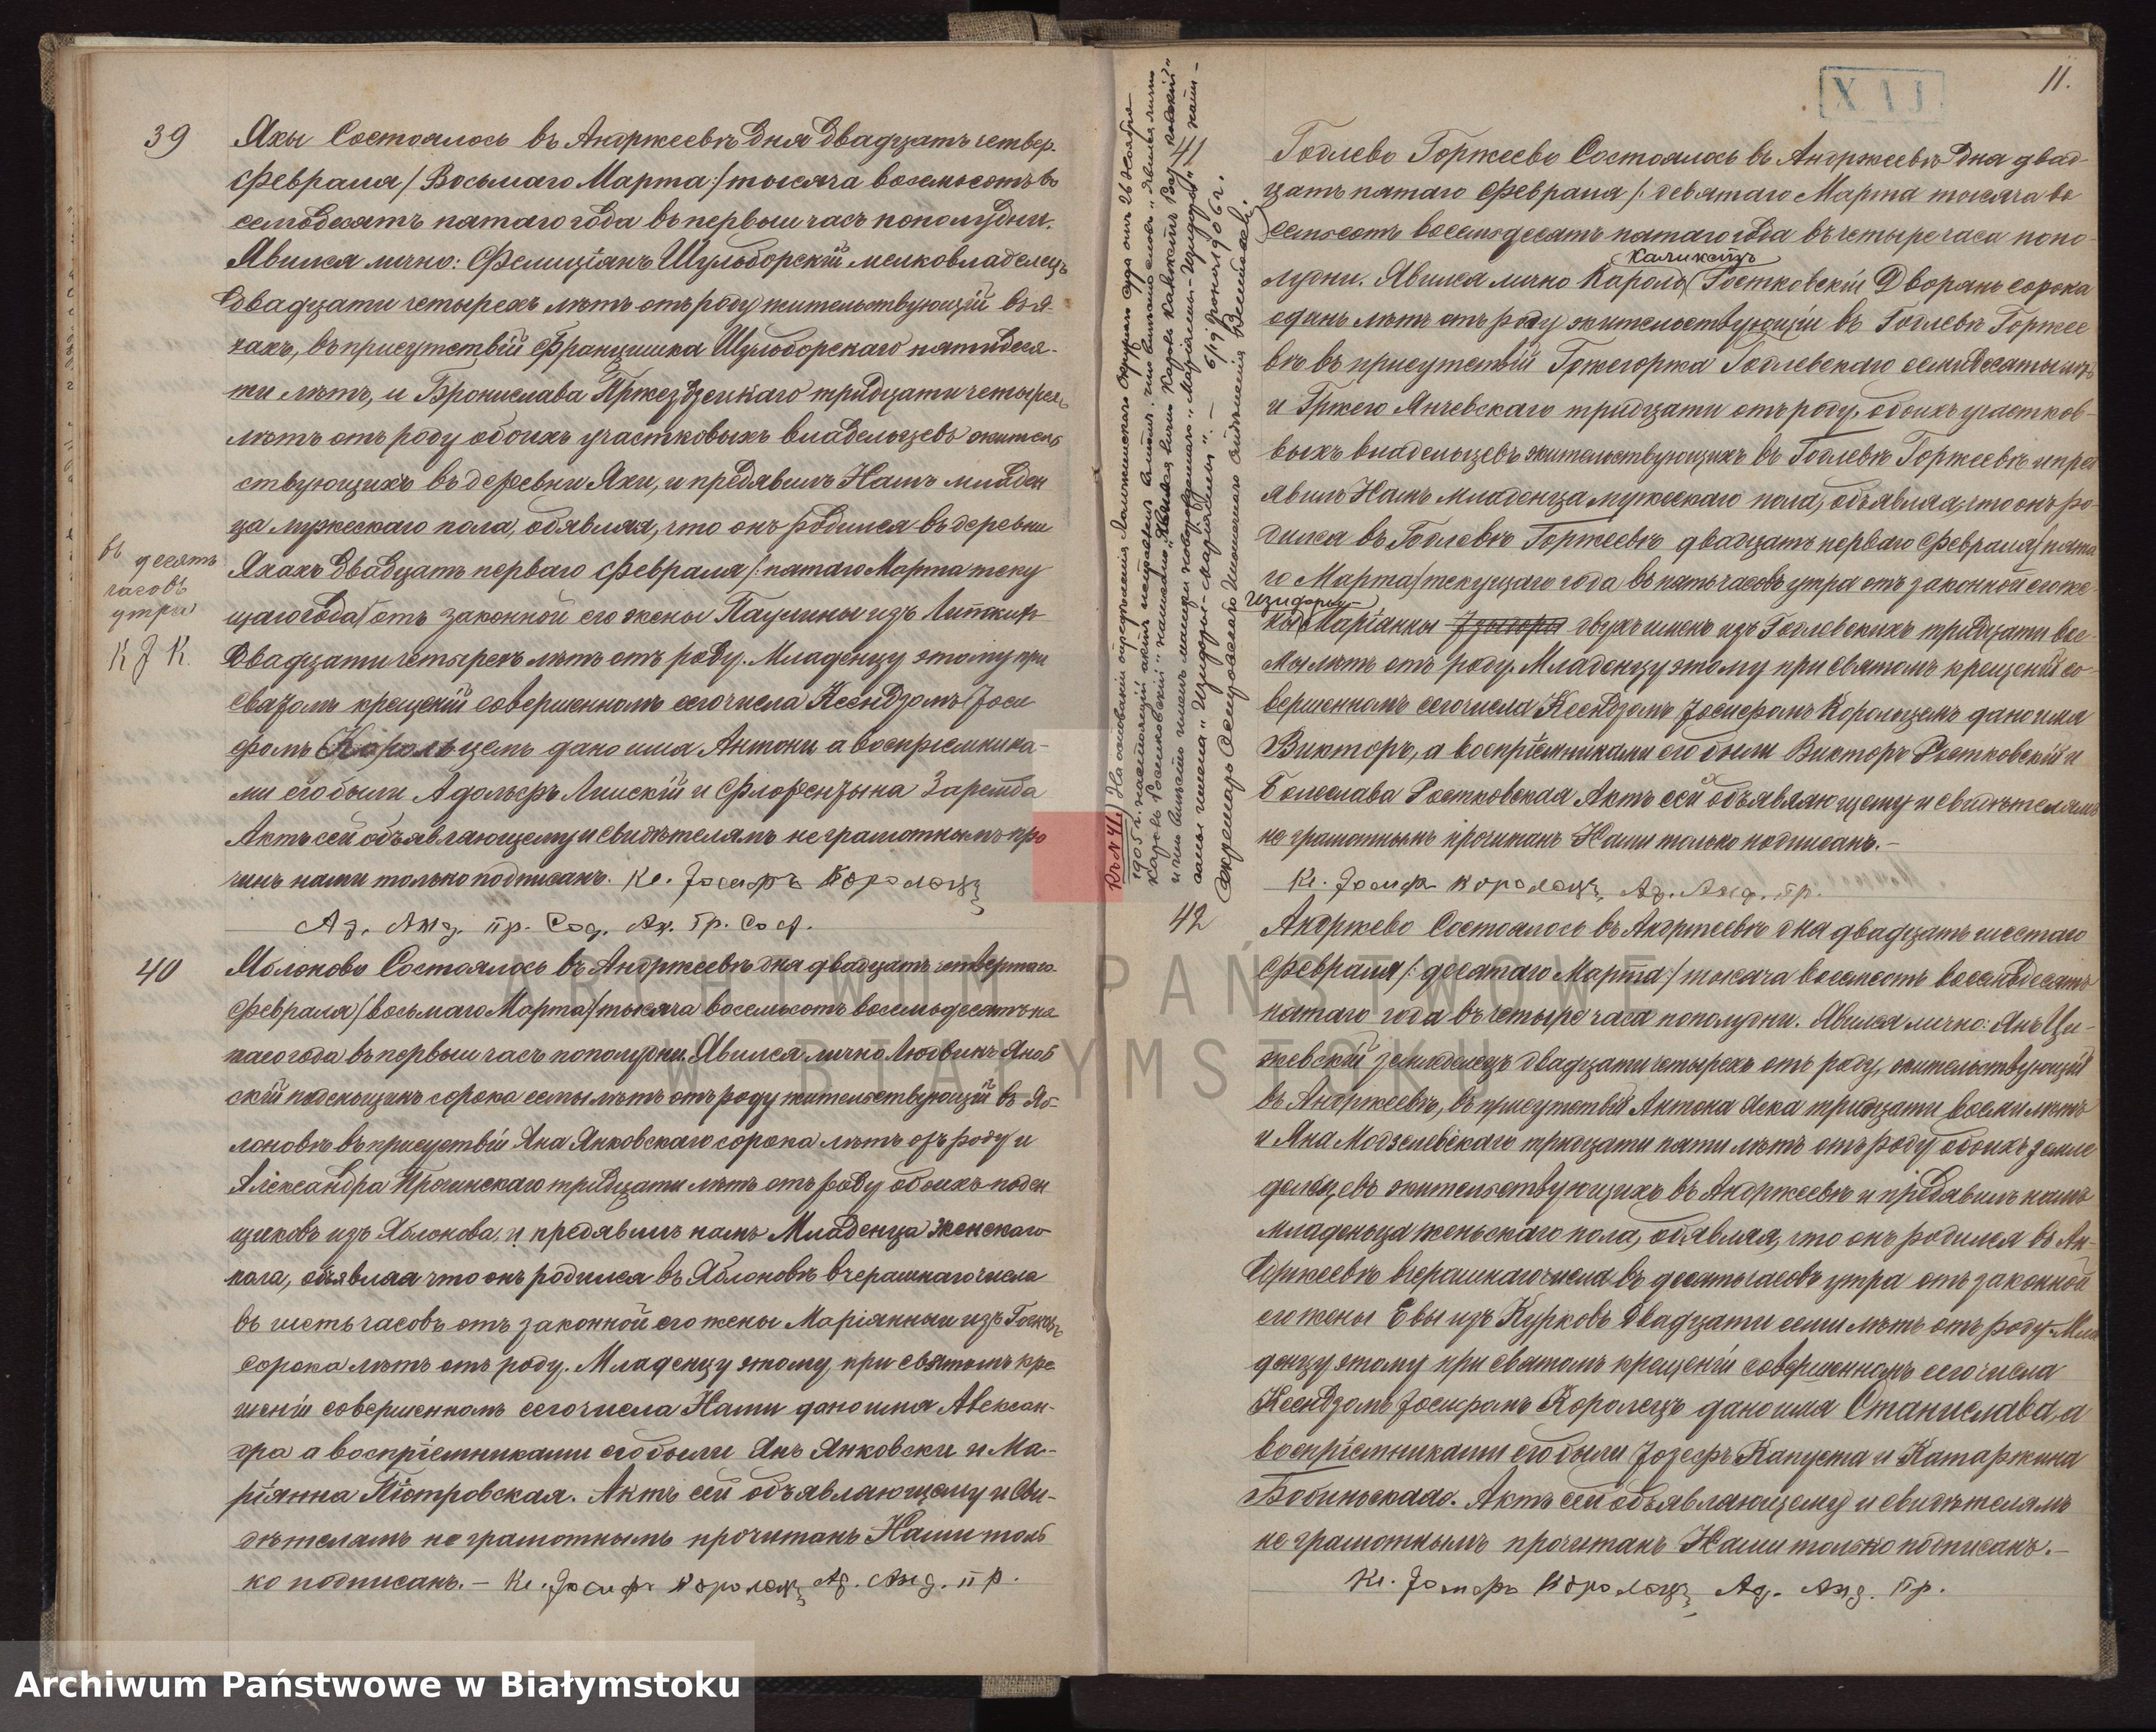 39
Яхы Состоялось въ Андржеевѣ дня двадцать четвер.
Февраля /: Восьмаго Марта :/ тысяча восемьсотъ во
семьдесятъ пятаго года въ первый часъ пополудни.
Явился лично: Фелиціянъ Шульборскій мелковладелецъ
двадцати четырехъ лѣтъ отъ роду жительствующій въ Я-
хахъ, въ присутствій Францишка Шульборскаго пятидеся-
ти лѣтъ, и Бронислава Пржездзецкаго тридцати четырехъ
лѣтъ отъ роду обоихъ участковыхъ владельцевъ житель
ствующихъ въ деревни Яхи, и предявилъ Намъ младен
ца мужескаго пола, обявляя, что онъ родился въ деревни
Яхахъ двадцать перваго Февраля /: пятаго Марта теку
щаго года/ отъ законной его жены Паулины изъ
двадцати четырехъ лѣтъ отъ роду. Младенцу этому при
святомъ крещеній совершенномъ сего числа Ксендзомъ Іоси
фомъ Корольцемъ дано имя Антони а воспріемника-
ми его были Адольфъ Липскій и Флорентына Заремба
Актъ сей объявляющему и свидѣтелямъ неграмотнымъ про
читъ нами только подписанъ. Кс. Іосифъ Королецъ
Ад. Анд. пр. Сод. Ак. Гр. Сост.
въ десять
часовъ
утра
К J К.
40
Яблоново Состоялось въ Андржеевѣ дня двадцать четвертаго
Февраля /: восьмаго Марта :/ тысяча восемьсотъ восемьдесятъ пя
таго года въ первый часъ пополудни. Явился лично Людвикъ Яновъ
скій поденьщикъ сорока семы лѣтъ отъ роду жительствующій въ Яб-
лоновѣ въ присуствій Яна Янковскаго сорока лѣтъ отъ роду и
Александра Прочинскаго тридцати лѣтъ отъ роду обоихъ поден
щиковъ изъ Яблонова, и предявилъ намъ Младенца женскаго
пола, объявляя что онъ родился въ Яблоновѣ вчерашнаго числа
въ шесть часовъ отъ законной его жены Маріянныи изъ
сорока лѣтъ отъ роду. Младенцу этому при святомъ кре
щеніи совершенномъ сего числа Нами дано имя Алексан-
дра а воспріемниками его были Янъ Янковски и Ма-
ріянна Піотровская. Актъ сей объявляющему и сви-
дѣтелямъ не грамотнымъ прочитанъ Нами толь
ко подписанъ.- Кс. Іосифъ Королецъ Ад. Анд. пр.
XIJ
11.
Къ N 41) На основаніи опредѣленія Ломжинскаго Окружнаго Суда отъ 26 Ноября
1905 г. настоящій актъ исправленъ въ томъ, что вмѣсто словъ "явился лично
Кароль Ростковскій" написано "Явился лично Кароль Каликстъ Ростковскій"
и что вмѣсто именъ матери новорожденнаго "Маріянны-Изидоры" напи-
саны имена "Изидоры-Маріянны".- 6/19 Іюня 1906 г.
41
Годлево Горжеево Состоялось въ Андржеевѣ дня двад-
цать пятаго Февраля /: девятаго Марта тысяча во
семьсотъ восемьдесятъ пятаго года въ четыре часа попо-
Каликстъ
лудни. Явился лично Кароль Ростковскіи Дворянъ сорока
одинъ лѣтъ отъ роду жительствующіи въ Годлевѣ Горжее
вѣ въ присутствій Гржегоржа Годлевскаго семидесяты лѣтъ
и Гржего Янчевскаго тридцати отъ роду, обоихъ участков-
выхъ владельцевъ жительствующихъ въ Годлевѣ Горжеевѣ и пред
явилъ Намъ младенца мужескаго пола, объявляя, что онъ ро-
дился въ Годлевѣ Горжеевѣ двадцать перваго Февраля /: пята
го Марта :/ текущаго года въ пять часовъ утра отъ законной его же-
Изидоры-
ны Маріанны двухъ именъ изъ Годлевскихъ тридцати вос-
мы лѣтъ отъ роду. Младенцу этому при святомъ крещеніи со-
вершенномъ сего числа Ксендзомъ Іосифомъ Корольцемъ дано имя
Викторъ, а воспріемниками его были Викторъ Ростковскій и
Болеслава Ростковская Актъ сей объявляющему и свидѣтелямъ
не грамотнымъ прочитанъ Нами только подписанъ.-
Кс. Іосифъ Королецъ Ад. Анд. пр.
42
Андржево Состоялось въ Андржеевѣ дня двадцать шестаго
Февраля /: десятаго Марта :/ тысяча восемьсотъ восемьдесятъ
пятаго года въ четыре часа пополудни. Явился лично: Янъ Ци-
жевскій земледелецъ двадцати четырехъ отъ роду, жительствующій
въ Андржеевѣ, въ присутствій Антона Яска тридцати восми лѣтъ
и Яна Модзелевскаго тридцати пяти лѣтъ отъ роду обоихъ земле
дельцевъ жительствующихъ въ Андржеевѣ и предявилъ намъ
младеньца женьскаго пола, обявляя, что онъ родился въ Ан-
држеевѣ вчерашнаго числа въ десять часовъ утра отъ законной
его жены Евы изъ Курковъ двадцати семи лѣтъ отъ роду. Мла
денцу этому при святомъ крещеніи совершенномъ сего числа
Ксендзомъ Іосифомъ Королецъ дано имя Станислава, а
воспріемниками его были Іозефъ Капуста и Катаржина
Актъ сей объявляющему и свидѣтелямъ
не грамотнымъ прочитанъ Нами только подписанъ.-
Кс. Іосифъ Королецъ Ад. Анд. пр.
ARCHIWUM PAŃSTWOWE
W BIAŁYMSTOKU
Archiwum Państwowe w Białymstoku